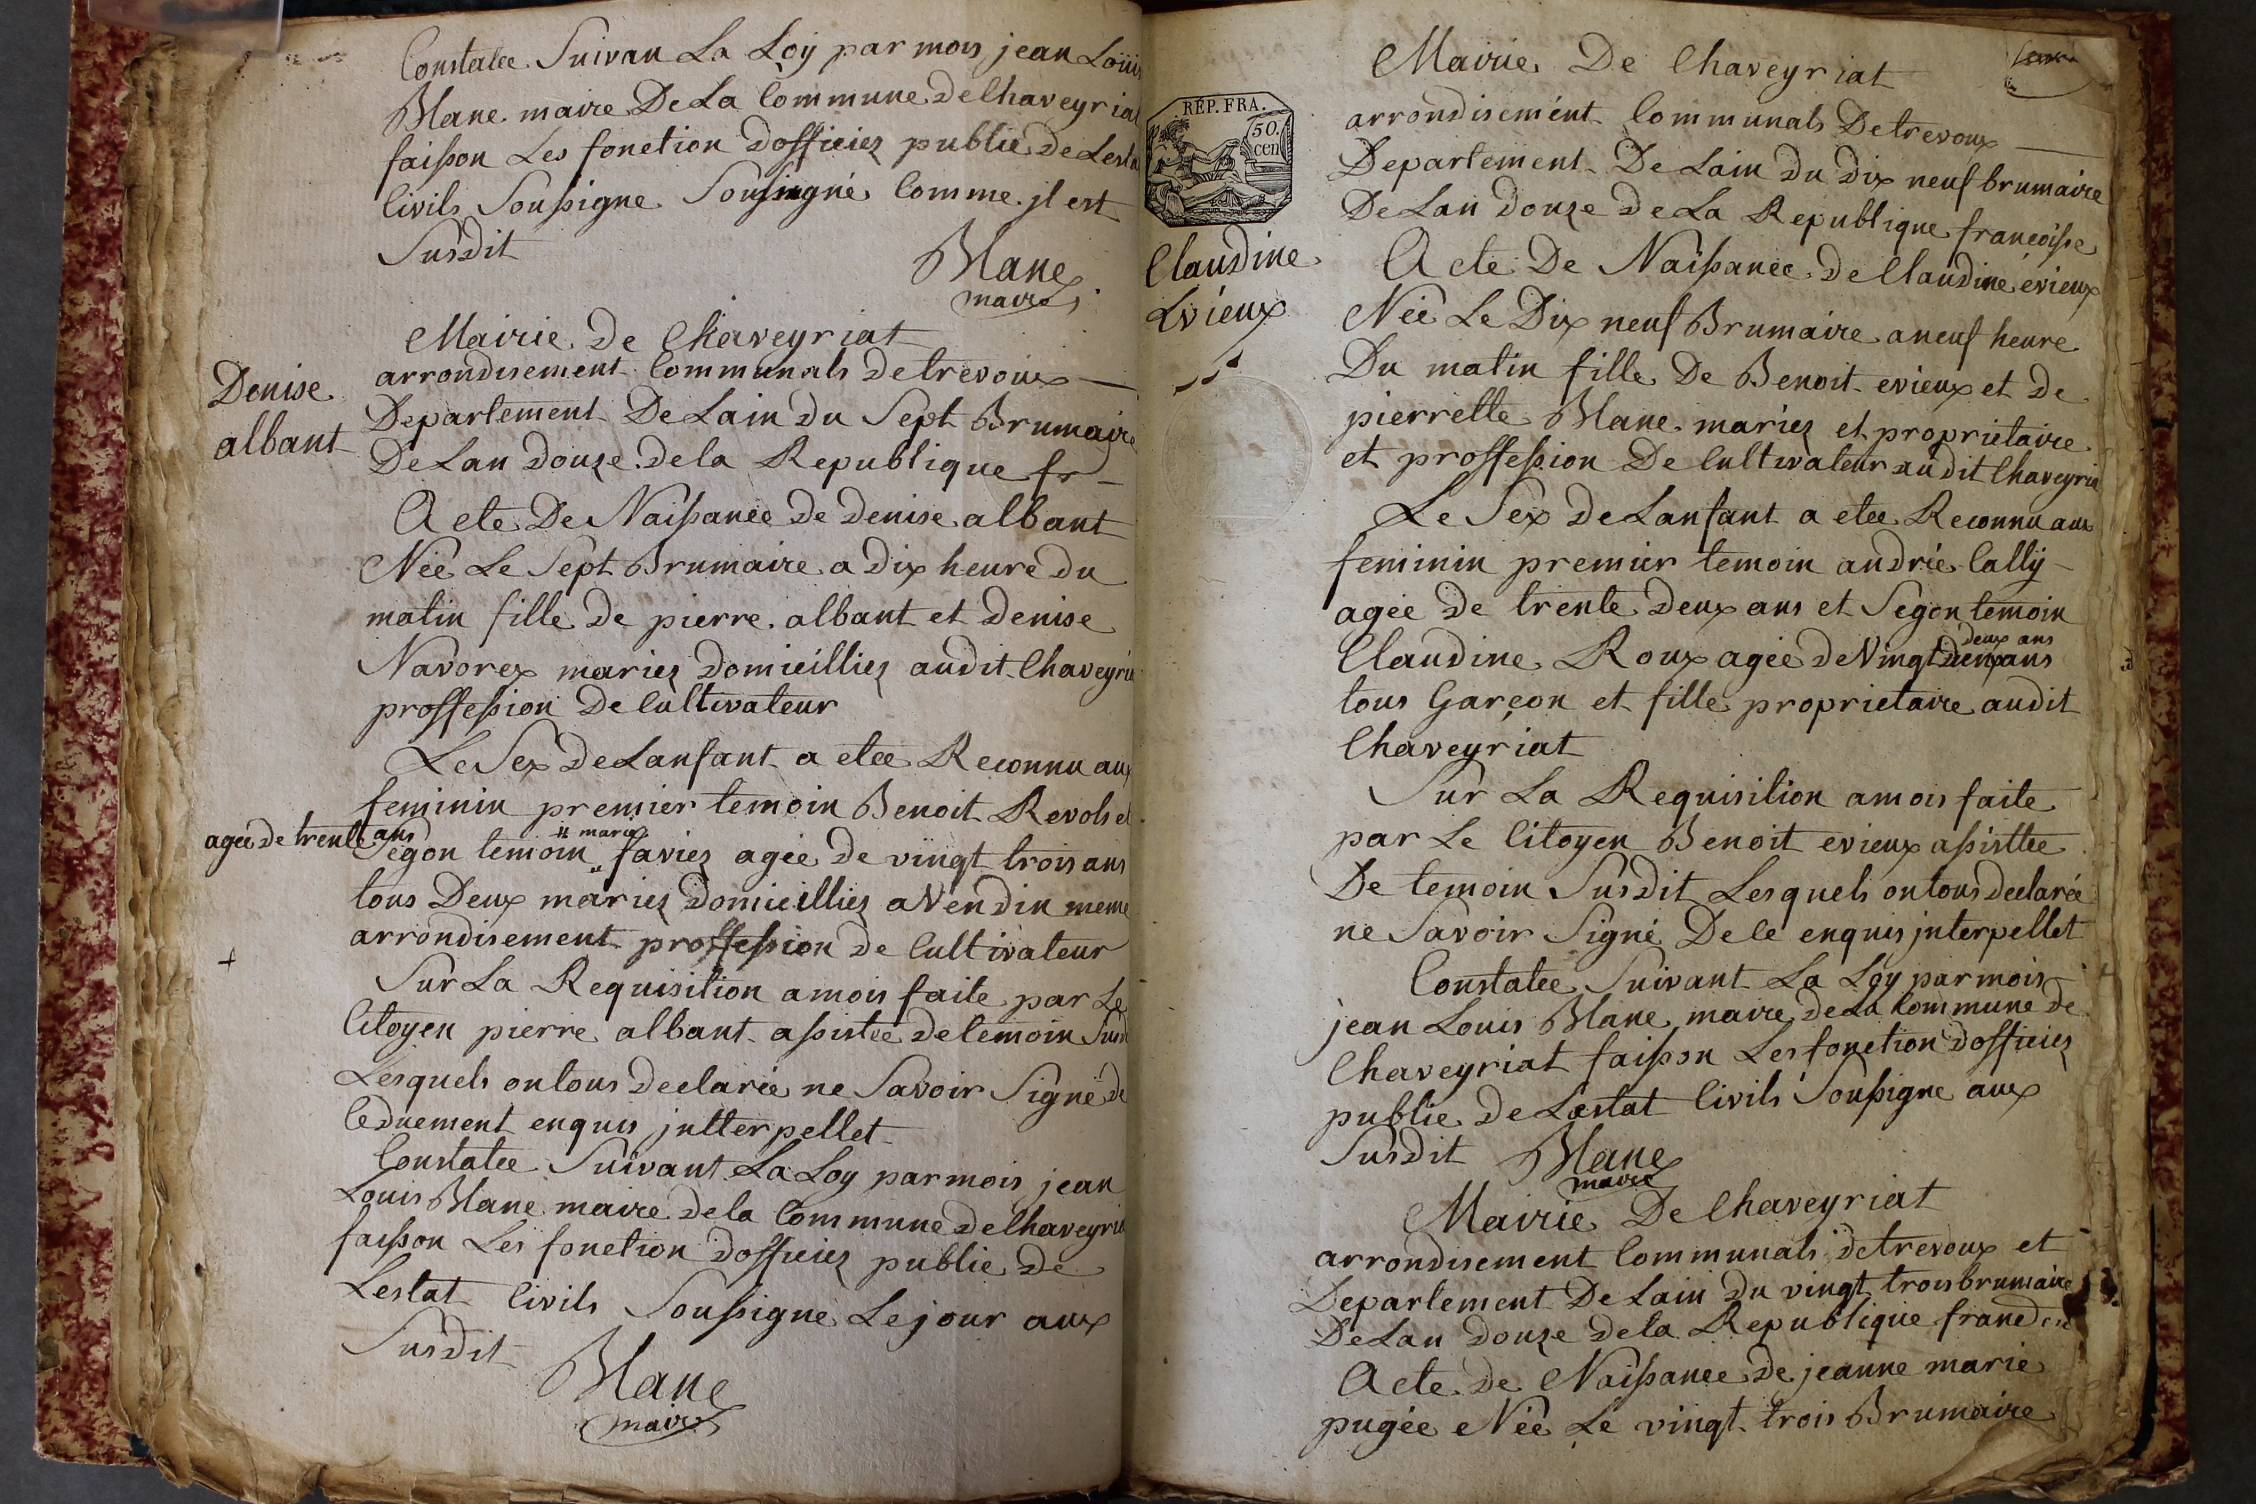 Constatee Suivan La Loÿ par mois jean Loüis
Blanc maire De La Commune de Chaveyriat
faisson Les fonction d'officiez public de Lesta
Civils Soussigne Soussigné Comme jl est
Susdit
Blanc
maire
Mairie de Chaveyriat
Denise
albant
arrondisement Communals de trevoux
Departement De Lain du Sept Brumaire
De Lan douze de la Republique fr
Acte De Naissance de denise albant
Néé Le Sept Brumaire a dix heure du
matin fille de pierre albant et denise
Navorex mariez domicilliez audit Chaveyria
proffession De Cultivateur
Le Sex de Lanfant a etee Reconnu aux
feminin premier temoin Benoit Revols et
agée de trente ans
Segon temoin # marie faviez agée de viingt trois ans
tous Deux mariez domicilliez a Vendin meme
arrondisement proffession de Cultivateur
+
Sur La Requisition a mois faite par Le
Citoyen pierre albant assistee de temoin Susd
Lesquels on tous declarée ne Savoir Signé de
Ce duement enquis jntterpellet
Constatee Suivant La Loy par mois jean
Louis Blanc maire de la Commune de Chaveyria
faisson Les fonction dofficiez public de
Lestat Civils Soussigne Le jour aux
Susdit
Blanc
maire
Mairie De Chaveyriat
RÉP. FRA.
50.
cen
arrondisemént Communals De trevoux
Departement De Lain Du Dix neuf brumaire
De Lan douze de La Republique francoisse
Claudine
Evieux
Acte De Naissance de Claudine évieux
Néé Le Dix neuf Brumaire a neuf heure
Du matin fille De Benoit evieux et de
pierrette Blanc mariez et proprietaire
et proffession De Cultivateur audit Chaveyria
Le Sex de Lanfant a etee Reconnu aux
feminin premier temoin andrée Callÿ
agée de trente deux ans et Segon temoin
deux ans
Claudine Roux agée de Vingt deux ans
tous Garçon et fille proprietaire audit
Chaveyriat
Sur La Requisition a mois faite
par Le Citoyen Benoit evieux assisttee
De temoin Susdit Lesquels on tous declarée
ne Savoir Signé De ce enquis jnterpellet
Constatee Suivant La Loy par mois
jean Louis Blanc maire de La Commune de
Chaveyriat faisson Les fonction d'officiez
public de Lestat Civils Soussigne aux
Susdit
Blanc
maire
Mairie De Chaveyriat
arrondisement Communals de trevoux et
Departement De Lain Du vingt trois brumaire
De Lan douze de la Republique
Acte de Naissance de jeanne marie
pugée Néé Le vingt trois Brumaire